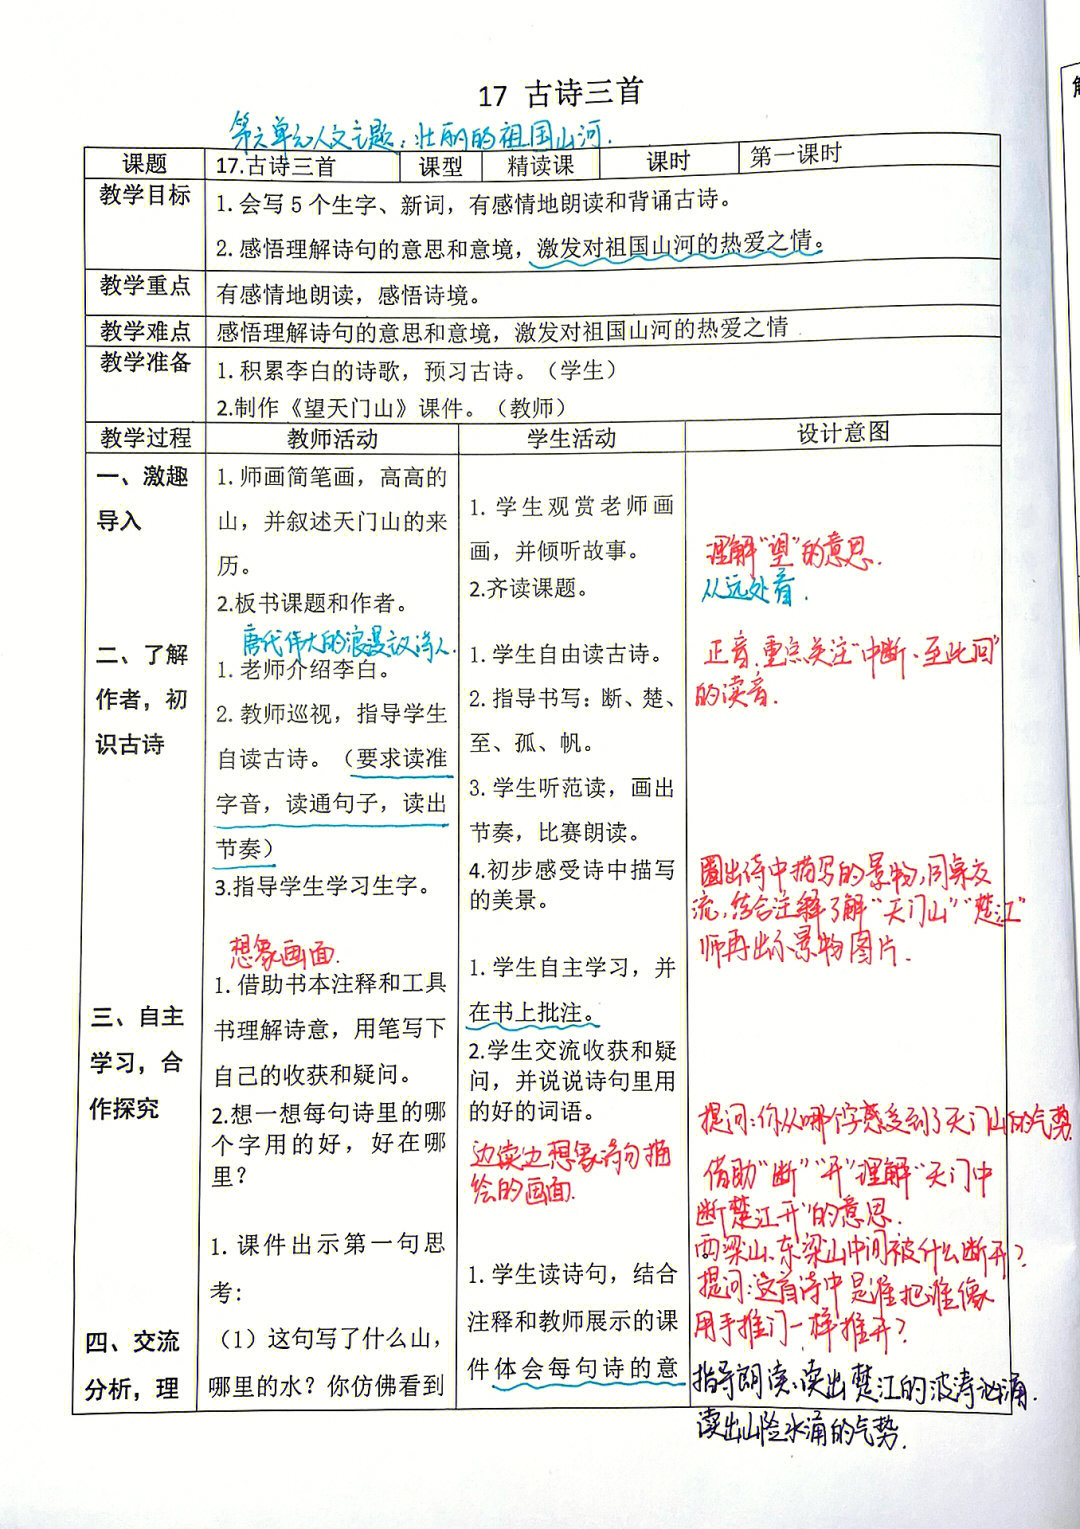 17 古诗三首
第六单元人文主题：壮丽的祖国山河.
课题 17.古诗三首 课型 精读课 课时 第一课时
教学目标
1. 会写 5 个生字、新词，有感情地朗读和背诵古诗。
2. 感悟理解诗句的意思和意境，激发对祖国山河的热爱之情。
教学重点 有感情地朗读，感悟诗境。
教学难点 感悟理解诗句的意思和意境，激发对祖国山河的热爱之情
教学准备
1. 积累李白的诗歌，预习古诗。（学生）
2.制作《望天门山》课件。（教师）
教学过程 教师活动 学生活动 设计意图
一、激趣
导入
1. 师画简笔画，高高的
山，并叙述天门山的来
历。
2.板书课题和作者。
1. 学生观赏老师画
画，并倾听故事。
2.齐读课题。
理解“望”的意思.
从远处看.
二、了解
作者，初
识古诗
唐代伟大的浪漫主义诗人.
1. 老师介绍李白。
2. 教师巡视，指导学生
自读古诗。（要求读准
字音，读通句子，读出
节奏）
3.指导学生学习生字。
1. 学生自由读古诗。
2. 指导书写：断、楚、
至、孤、帆。
3. 学生听范读，画出
节奏，比赛朗读。
4.初步感受诗中描写
的美景。
正音.重点关注“中断、至此回”
的读音.
圈出诗中描写的景物,同桌交
流,结合注释了解“天门山”“楚江”
师再出示景物图片.
三、自主
学习，合
作探究
想象画面.
1. 借助书本注释和工具
书理解诗意，用笔写下
自己的收获和疑问。
2.想一想每句诗里的哪
个字用的好，好在哪
里？
1. 学生自主学习，并
在书上批注。
2.学生交流收获和疑
问，并说说诗句里用
的好的词语。
边读边想象诗句描
绘的画面.
提问:你从哪个字感受到了天门山的气势
借助“断”“开”理解“天门中
断楚江开”的意思.
西梁山、东梁山中间被什么断开？
提问:这首诗中是谁把谁像
用手推门一样推开？
四、交流
分析，理
1. 课件出示第一句思
考：
（1）这句写了什么山，
哪里的水？你仿佛看到
1. 学生读诗句，结合
注释和教师展示的课
件体会每句诗的意
指导朗读、读出楚江的波涛汹涌.
读出山险水涌的气势.